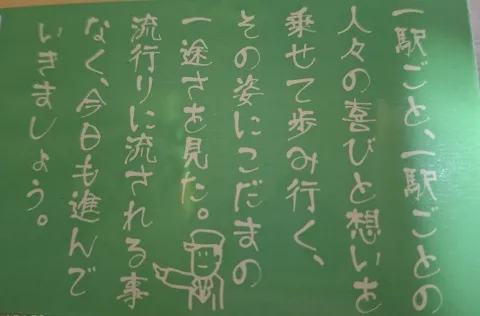 一駅ごと、一駅ごとの
人々の喜びと想いを
乗せて歩み行く、
その姿にこだまの
一途さを見た。
流行りに流される事
なく、今日も進んで
いきましょう。